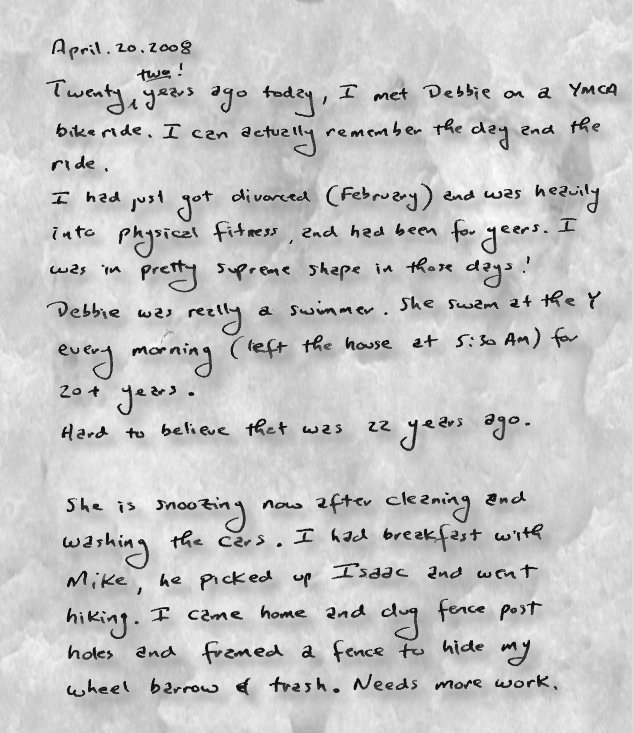 April.20.2008
Twenty two! years ago today, I met Debbie on a YMCA
bike ride. I can actually remember the day and the
ride.
I had just got divorced (February) and was heavily
into physical fitness, and had been for years. I
was in pretty supreme shape in those days!
Debbie was really a swimmer. She swam at the Y
every morning (left the house at 5:30 AM) for
20+ years.
Hard to believe that was 22 years ago.
She is snoozing now after cleaning and
washing the cars. I had breakfast with
Mike, he picked up Isaac and went
hiking. I came home and dug fence post
holes and framed a fence to hide my
wheel barrow & trash. Needs more work.